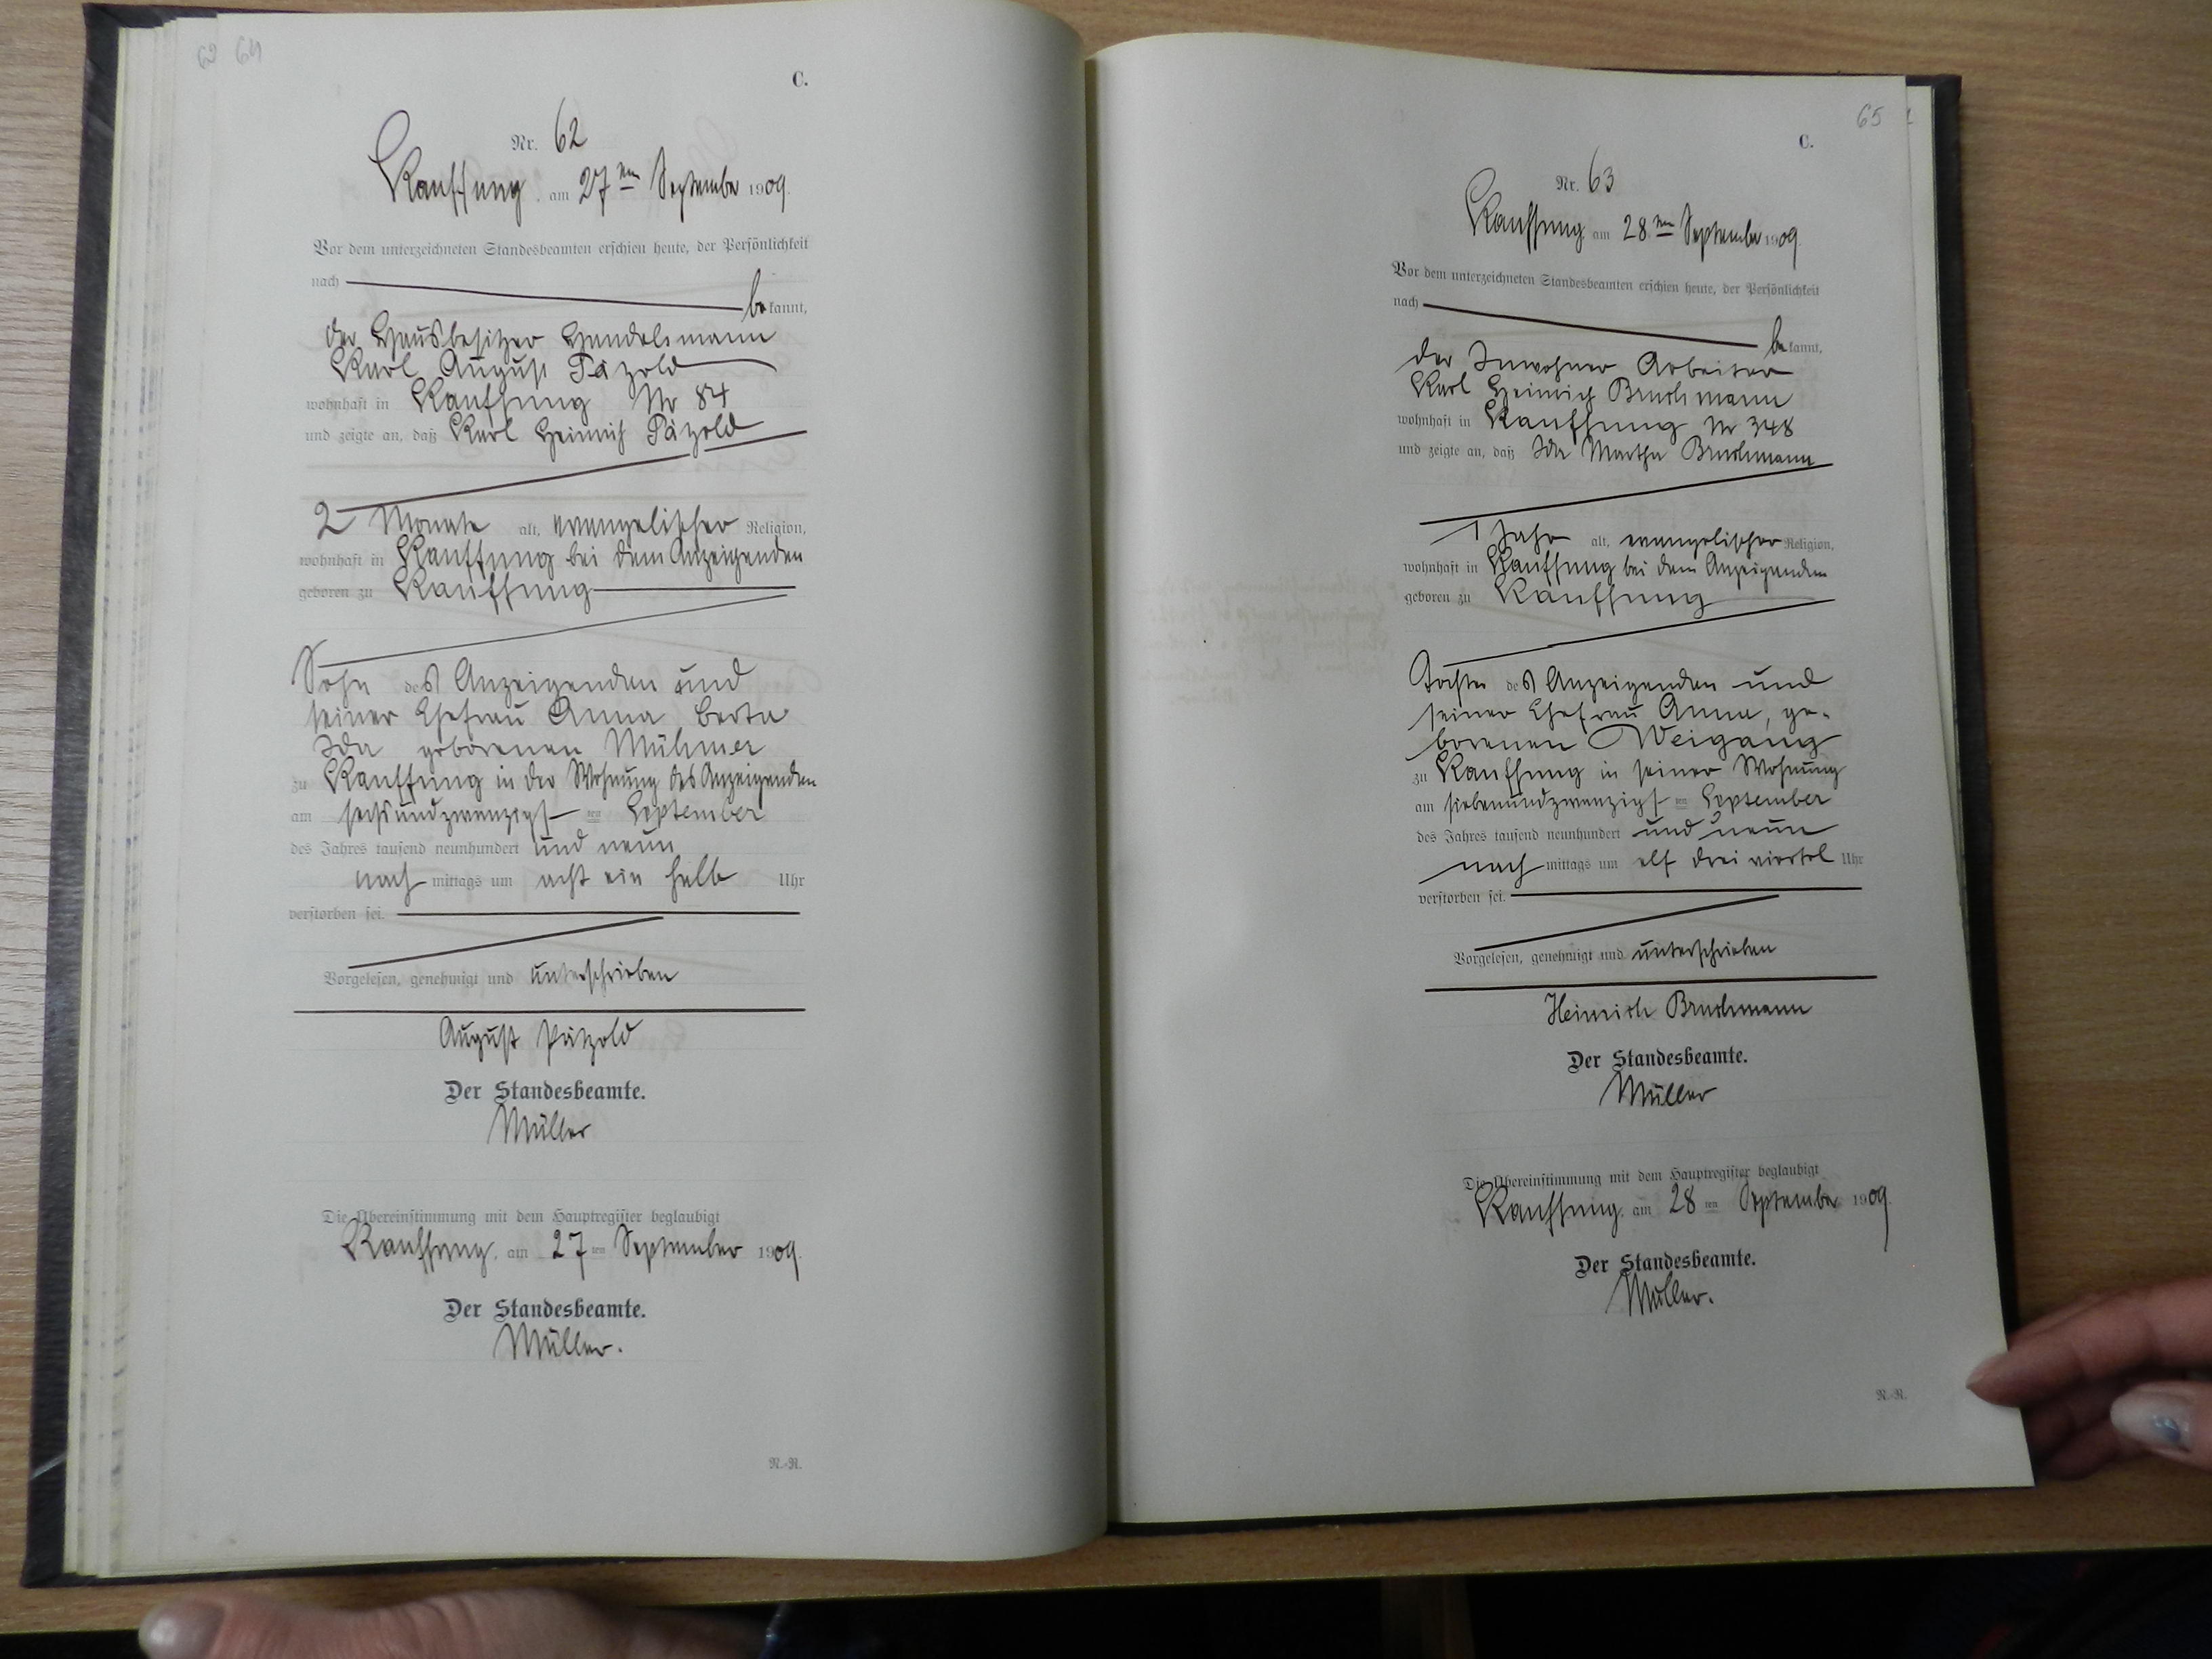 62 64
C.
Nr. 62
Kauffung, am 27ten September 1909.
Vor dem unterzeichneten Standesbeamten erschien heute, der Persönlichkeit
nach
bekannt,
der Hausbesitzer Handelsmann
Karl August Päzold
wohnhaft in Kauffung Nr 84
und zeigte an, daß Karl Heinrich Päzold
2 Monate alt, evangelischer Religion,
wohnhaft in Kauffung bei dem Anzeigenden
geboren zu Kauffung
Sohn des Anzeigenden und
seiner Ehefrau Anna Berta
Ida geborenen Mühmer
zu Kauffung in der Wohnung des Anzeigenden
am sechsundzwanzigsten September
des Jahres tausend neunhundert und neun
nachmittags um acht ein halb Uhr
verstorben sei.
Vorgelesen, genehmigt und unterschrieben
August Pätzold
Der Standesbeamte.
Müller
Die Übereinstimmung mit dem Hauptregister beglaubigt
Kauffung, am 27ten September 1909.
Der Standesbeamte.
Müller.
N.-N.
65
C.
Nr. 63
Kauffung am 28ten September 1909.
Vor dem unterzeichneten Standesbeamten erschien heute, der Persönlichkeit
nach
bekannt,
der Inwohner Arbeiter
Karl Heinrich Bruchmann
wohnhaft in Kauffung Nr 348
und zeigte an, daß Ida Martha Bruchmann
1 Jahr alt, evangelischer Religion,
wohnhaft in Kauffung bei dem Anzeigenden
geboren zu Kauffung
Tochter des Anzeigenden und
seiner Ehefrau Anna, ge-
borenen Weigang
zu Kauffung in seiner Wohnung
am siebenundzwanzigsten September
des Jahres tausend neunhundert und neun
nachmittags um elf drei viertel Uhr
verstorben sei.
Vorgelesen, genehmigt und unterschrieben
Heinrich Bruchmann
Der Standesbeamte.
Müller
Die Übereinstimmung mit dem Hauptregister beglaubigt
Kauffung, am 28ten September 1909.
Der Standesbeamte.
Müller.
N.-N.